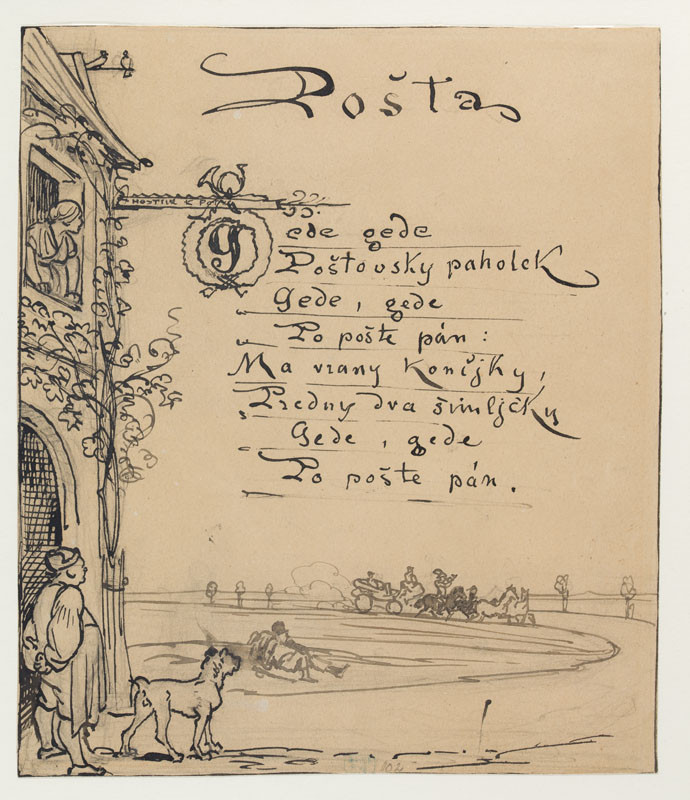 Pošta
HOSTINEC K POŠTĚ
Gede gede
Poštovsky paholek
Gede, gede
Po pošte pán:
Ma vrany Konijky,
Predny dva šimljčky
Gede, gede
Po pošte pán.
102